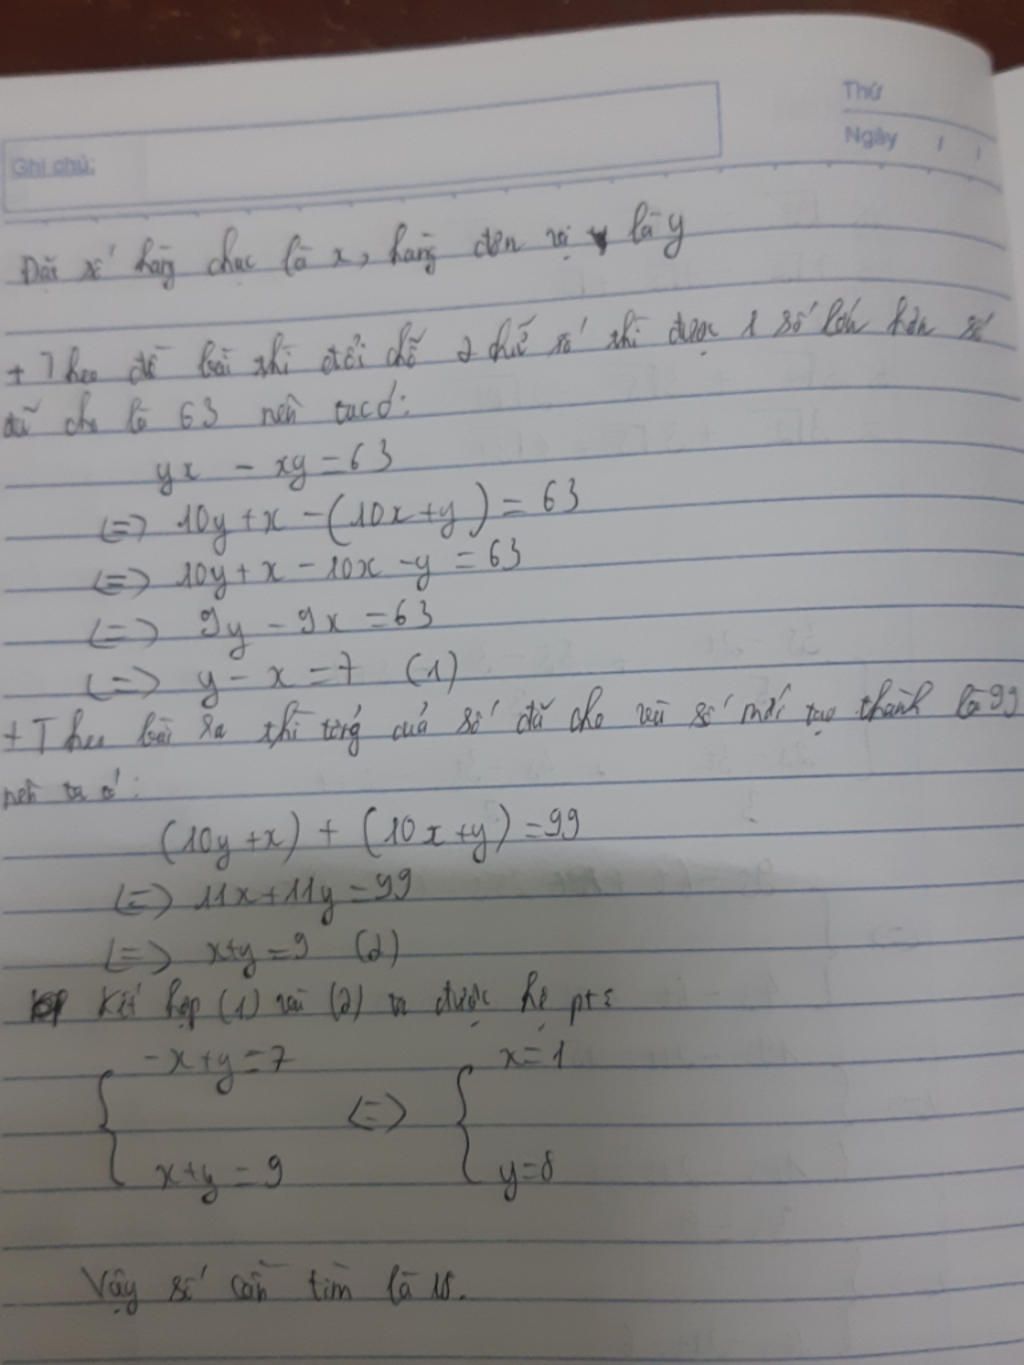 Thứ
Ngày / /
Ghi chú:
Đặt số hàng chục là x, hàng đơn vị là y
+ Theo đề bài thì đổi chỗ 2 chữ số thì được 1 số lớn hơn số
đã cho là 63 nên ta có:
yx - xy = 63
<=> 10y + x - (10x + y) = 63
<=> 10y + x - 10x - y = 63
<=> 9y - 9x = 63
<=> y - x = 7 (1)
+ Theo bài ra thì tổng của số đã cho và số mới tạo thành là 99
nên ta có:
(10y + x) + (10x + y) = 99
<=> 11x + 11y = 99
<=> x + y = 9 (2)
Kết hợp (1) và (2) ta được hệ pt:
{ -x + y = 7 <=> { x = 1
x + y = 9 y = 8
Vậy số cần tìm là 18.